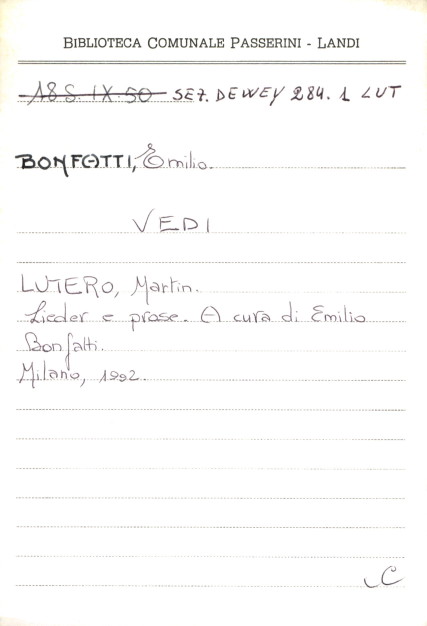 BIBLIOTECA COMUNALE PASSERINI - LANDI
18 S. IX. 50 SEZ. DEWEY 284. 1 LUT
BONFATTI, Emilio.
VEDI
LUTERO, Martin.
Lieder e prose. A cura di Emilio
Bonfatti.
Milano, 1992.
C